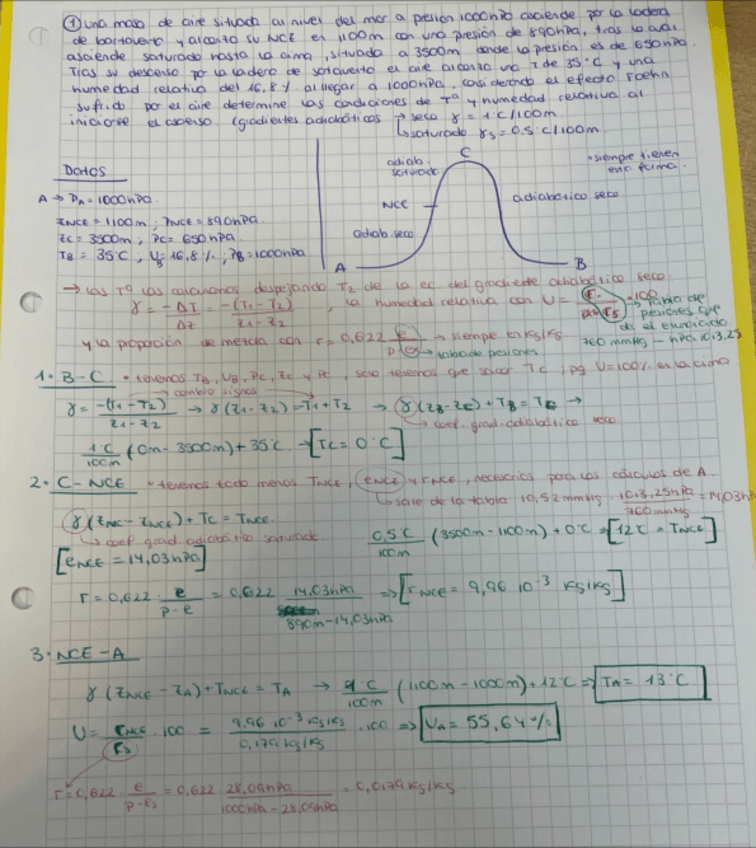 ① una masa de aire situada al nivel del mar a presión 1000hPa asciende por la ladera
de barlovento y alcanza su NCE en 1100m con una presión de 890hPa, tras lo cual
asciende saturado hasta la cima, situada a 3500m donde la presión es de 650hPa.
Tras su descenso por la ladera de sotavento el aire alcanza una T de 35°C y una
humedad relativa del 16,8% al llegar a 1000hPa. Considerando el efecto Foehn
sufrido por el aire determine las condiciones de Tª y humedad relativa al
iniciarse el ascenso (gradientes adiabáticos → seco γ = 1°C/100m
↳ saturado γs = 0.5°C/100m
DATOS
A → PA = 1000hPa
ZNCE = 1100m ; PNCE = 890hPa
ZC = 3500m ; PC = 650hPa
TB = 35°C ; UB = 16,8% ; PB = 1000hPa
adiab. saturado
C
• siempre tienen esta forma.
NCE
adiabático seco
adiab. seco
A
B
→ Las Tª las calculamos despejando T2 de la ec. del gradiente adiabático seco
γ = -ΔT/Δz = -(T1-T2)/(z1-z2) , la humedad relativa con U = r/rs · 100
→ tabla de presiones que da el enunciado
y la proporción de mezcla con r = 0,622 e/(p-e) → siempre en kg/kg
↳ tabla de presiones
760 mmHg — hPa 1013,25
1. B-C • tenemos TB, UB, PC, ZC y PC, solo tenemos que sacar TC ; pq U=100% en la cima
γ = -(T1-T2)/(z1-z2) → γ(z1-z2) = -T1+T2 → γ(zB-zC) + TB = TC →
→ cambio signos
↳ coef. grad. adiabático seco
1°C/100m (0m - 3500m) + 35°C → [TC = 0°C]
2. C-NCE • tenemos todo menos TNCE, eNCE y rNCE, necesarios para los cálculos de A
↳ sale de la tabla 10,52 mmHg · 1013,25hPa/760mmHg = 14,03hPa
γ(zC - zNCE) + TC = TNCE
↳ coef grad. adiabático saturado
0,5°C/100m (3500m - 1100m) + 0°C ⇒ [12°C = TNCE]
[eNCE = 14,03hPa]
r = 0,622 · e/(p-e) = 0,622 14,03hPa/(890m-14,03hPa) ⇒ [rNCE = 9,96 10⁻³ kg/kg]
3. NCE-A
γ(zNCE - zA) + TNCE = TA → 1°C/100m (1100m - 1000m) + 12°C ⇒ TA = 13°C
U = rNCE/rs · 100 = 9,96 10⁻³ kg/kg / 0,179 kg/kg · 100 ⇒ UA = 55,64%
r = 0,622 · e/(p-es) = 0,622 28,09hPa/(1000hPa - 28,09hPa) = 0,0179 kg/kg